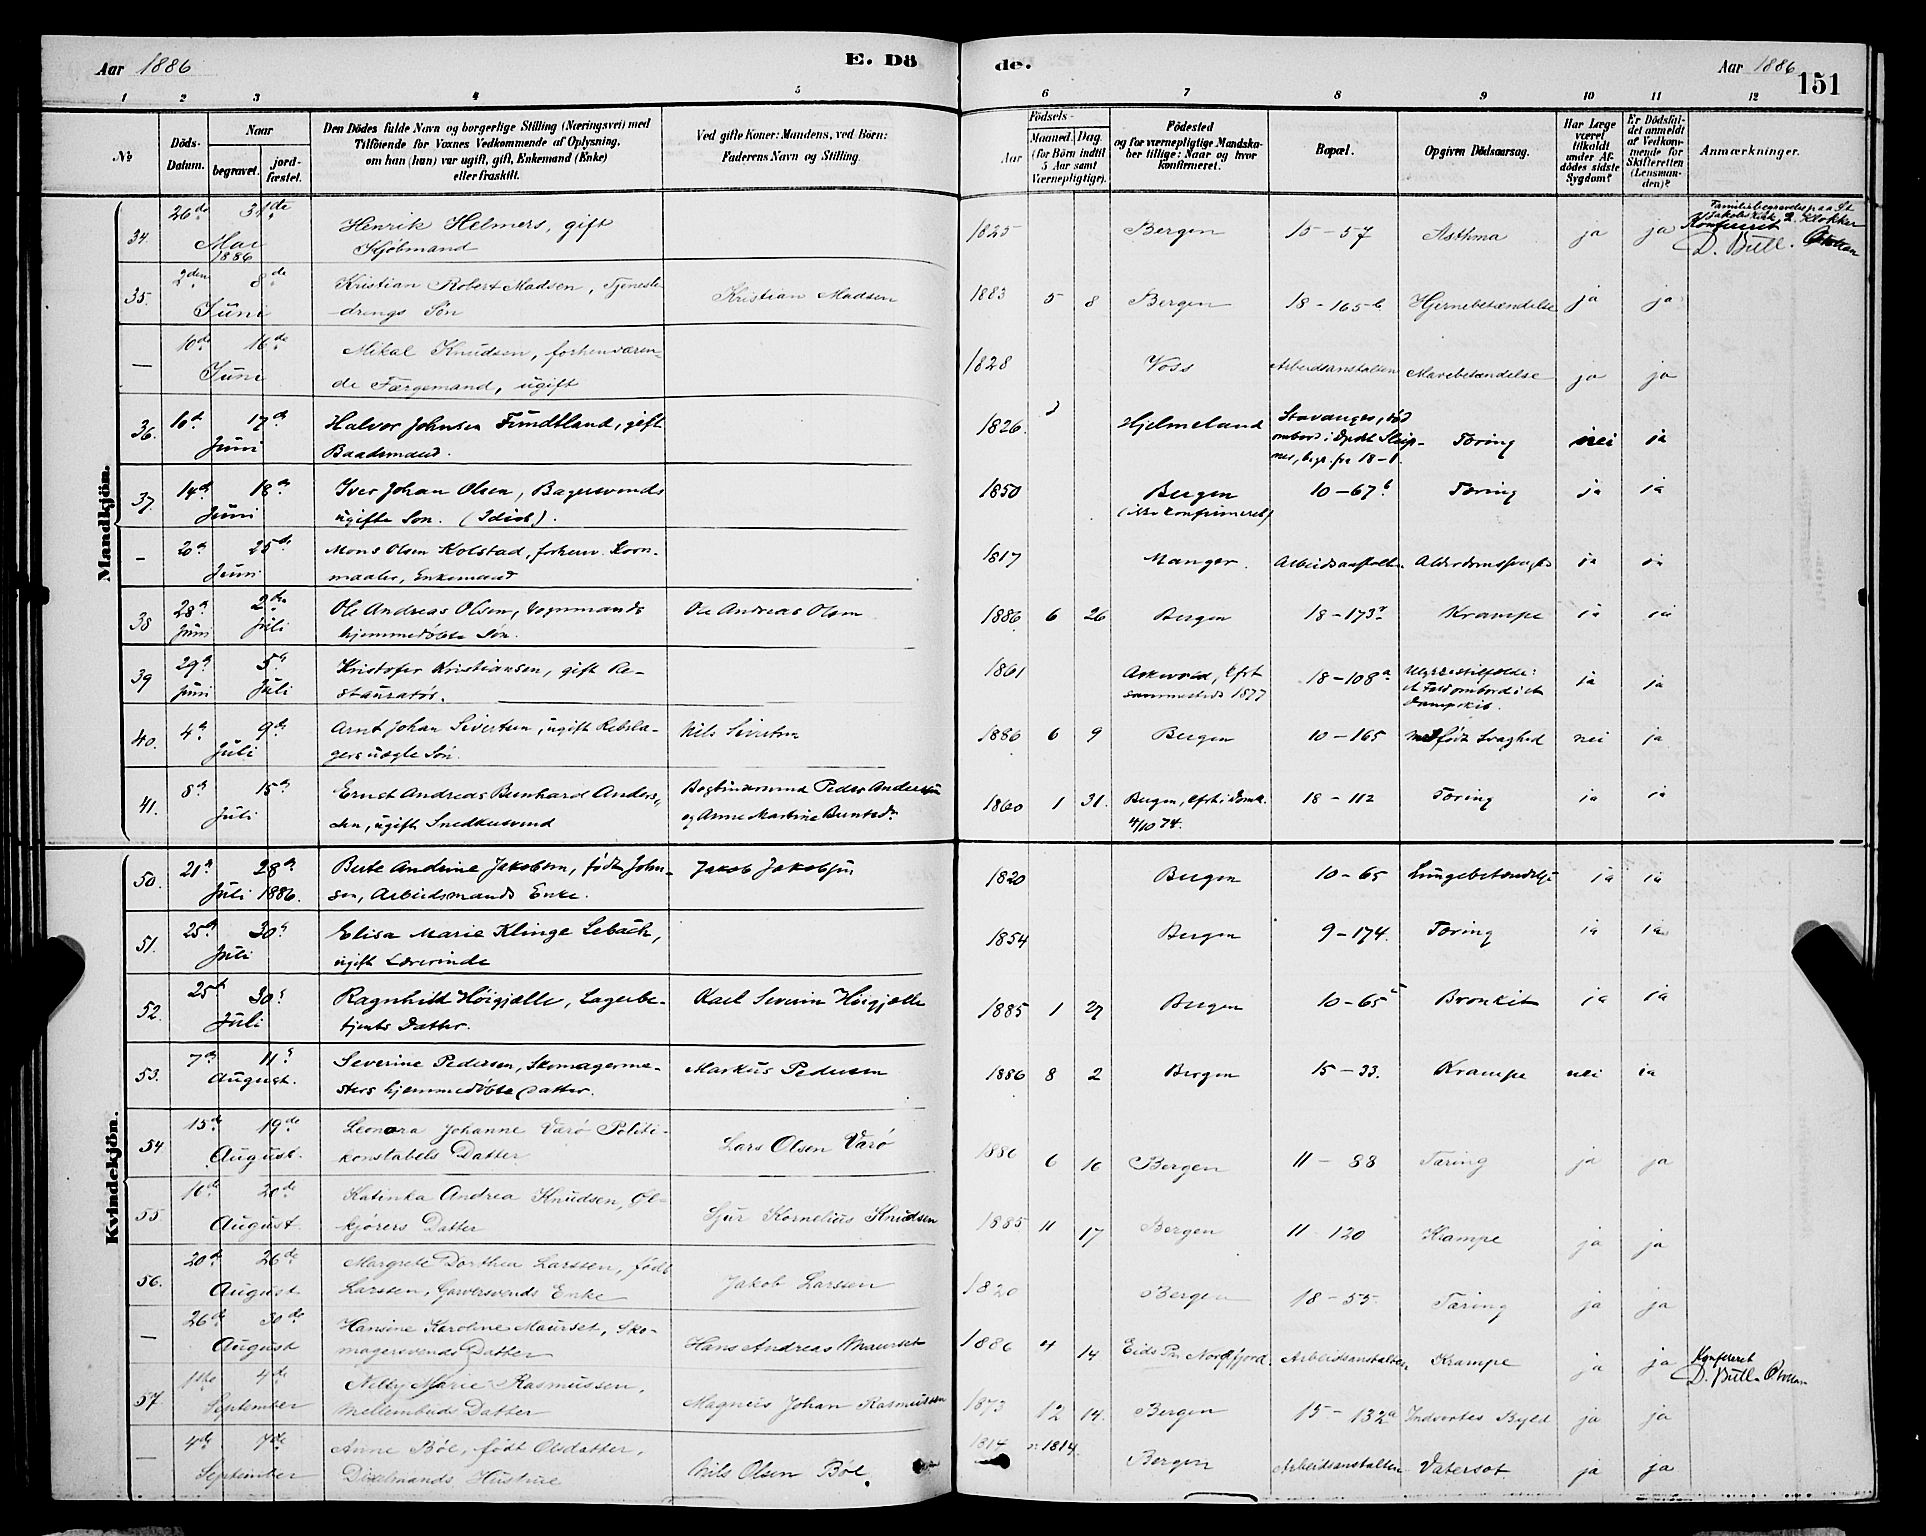 Aar 1886
E. Dö
de.
Aar 1886
151
1 2 3 4 5 6 7 8 9 10 11 12
No
Döds-Datum.
Naar
begravet.
jord-fæstet.
Den Dödes fulde Navn og borgerlige Stilling (Næringsvei) med
Tilföiende for Voxnes Vedkommende af Oplysning,
om han (hun) var ugift, gift, Enkemand (Enke)
eller fraskilt.
Ved gifte Koner: Mandens, ved Börn:
Faderens Navn og Stilling.
Födsels-
Aar
Maaned. Dag.
(for Börn indtil
5 Aar samt
Værnepligtige).
Födested
og for værnepligtige Mandska-
ber tillige: Naar og hvor
konfirmeret.
Bopæl.
Opgiven Dödsaarsag.
Har Læge
været
tilkaldt
under Af-
dödes sidste
Sygdom?
Er Dödsfal-
det anmeldt
af Vedkom-
mende for
Skifteretten
(Lensman-
den)?
Anmærkninger.
Mandkjön.
34 26de 31de Mai 1886 Henrik Helmers, gift
Kjöbmand 1825 Bergen 15-57 Asthma ja ja
Konfereret
D. Bull.
35. 2den 8de Juni Kristian Robert Madsen, Tjeneste-
drengs Sön Kristian Madsen 1883 5 8 Bergen 18-165b Hjernebetændelse ja ja
— 10de 16de Juni Mikal Knudsen, forhenværen-
de Færgemand, ugift 1828 Voss Arbeidsanstalten Mavebetændelse ja ja
36. 17de Juni Halvor Johnsen Fundtland, gift
Baadsmand. 1826. Hjelmeland Stavanger, död
ombord i Dpskt Sleip-
ner, begr. fra 18-1. Tæring nei ja
37. 14de 18de Juni Iver Johan Olsen, Bagersvends
ugifte Sön. (Idiot). 1850 Bergen
(ikke konfirmeret) 10-67b Tæring ja ja
— 20de 25de Juni Mons Olsen Kolstad, forhenv. Korn-
maaler, Enkemand 1817 Manger. Arbeidsanstalten ja ja
38 28de Juni 2den Juli Ole Andreas Olsen, Vognmands
hjemmedöbte Sön. Ole Andreas Olsen 1886 6 26 Bergen 18-173 Krampe ja ja
39 29de Juni 5te Juli Kristofer Kristiansen, gift Re-
stauratör. 1861 Askevold, Cfrt
sammesteds 1877 18-108a Ulykkestilfælde:
et Fald ombord i et
Dampskib. ja ja
40. 4de 9de Juli Arnt Johan Sivertsen, ugift Rebsla-
gers uægte Sön. Nils Sivertsen 1886 6 9 Bergen 10-165 Medfödt Svaghed nei ja
41. 8de 15de Juli Ernst Andreas Bernhard Ander-
sen, ugift Snedkersvend Bogbindersvend Peder Andersen
og Anne Martine Berntsdr. 1860 1 31. Bergen, Cfrt i Domk.
4/10 74. 18-112 Tæring ja ja
Kvindekjön.
50. 21de 28de Juli 1886. Berte Andrine Jakobsen, födt John-
sen, Arbeidsmands Enke. Jakob Jakobsen 1820 Bergen 10-65 Lungebetændelse ja ja
51. 25de 30te Juli Elisa Marie Klinge Lebach,
ugift Lærerinde 1854 Bergen 9-174. Tæring ja ja
52. 25de 30te Juli Ragnhild Höigjælle, Lagerbe-
tjents Datter. Karl Severin Höigjælle 1885 1 27 Bergen 10-65 Bronkit ja ja
53. 7de 11te August. Severine Pedersen, Skomagerme-
sters hjemmedöbte Datter. Markus Pedersen 1886 8 2 Bergen 15-33. Krampe nei ja
54 15de 19de August. Leonora Johanne Varö Politi-
konstabels Datter Lars Olsen Varö 1886 6 10 Bergen 11-88 Tæring ja ja
55. 16de 20de August. Katinka Andrea Knudsen, Öl-
kjörers Datter Sjur Kornelius Knudsen 1885 11 17 Bergen 11-120 Krampe ja ja
56. 20de 26de August Margrete Dorthea Larssen, födt
Larssen, Garversvends Enke Jakob Larssen 1820 Bergen 18-55. Tæring ja ja
— 26de 30de August Hansine Karoline Maurset, Sko-
magersvends Datter Hans Andreas Maurset 1886 4 14 Eids Pr. Nordfjord. Arbeidsanstalten Krampe ja ja
Konfereret
D. Bull
57 1ste 4de September Nelly Marie Rasmussen,
Mellembuds Datter Magnus Johan Rasmussen 1873 12 14. Bergen 15-132a Indvortes Byld ja ja
— 4de 7de September Anne Böe, födt Olsdatter,
Dixelmands Hustrue Nils Olsen Böe. 1814 1814. Bergen Arbeidsanstalten Vatersot. ja ja